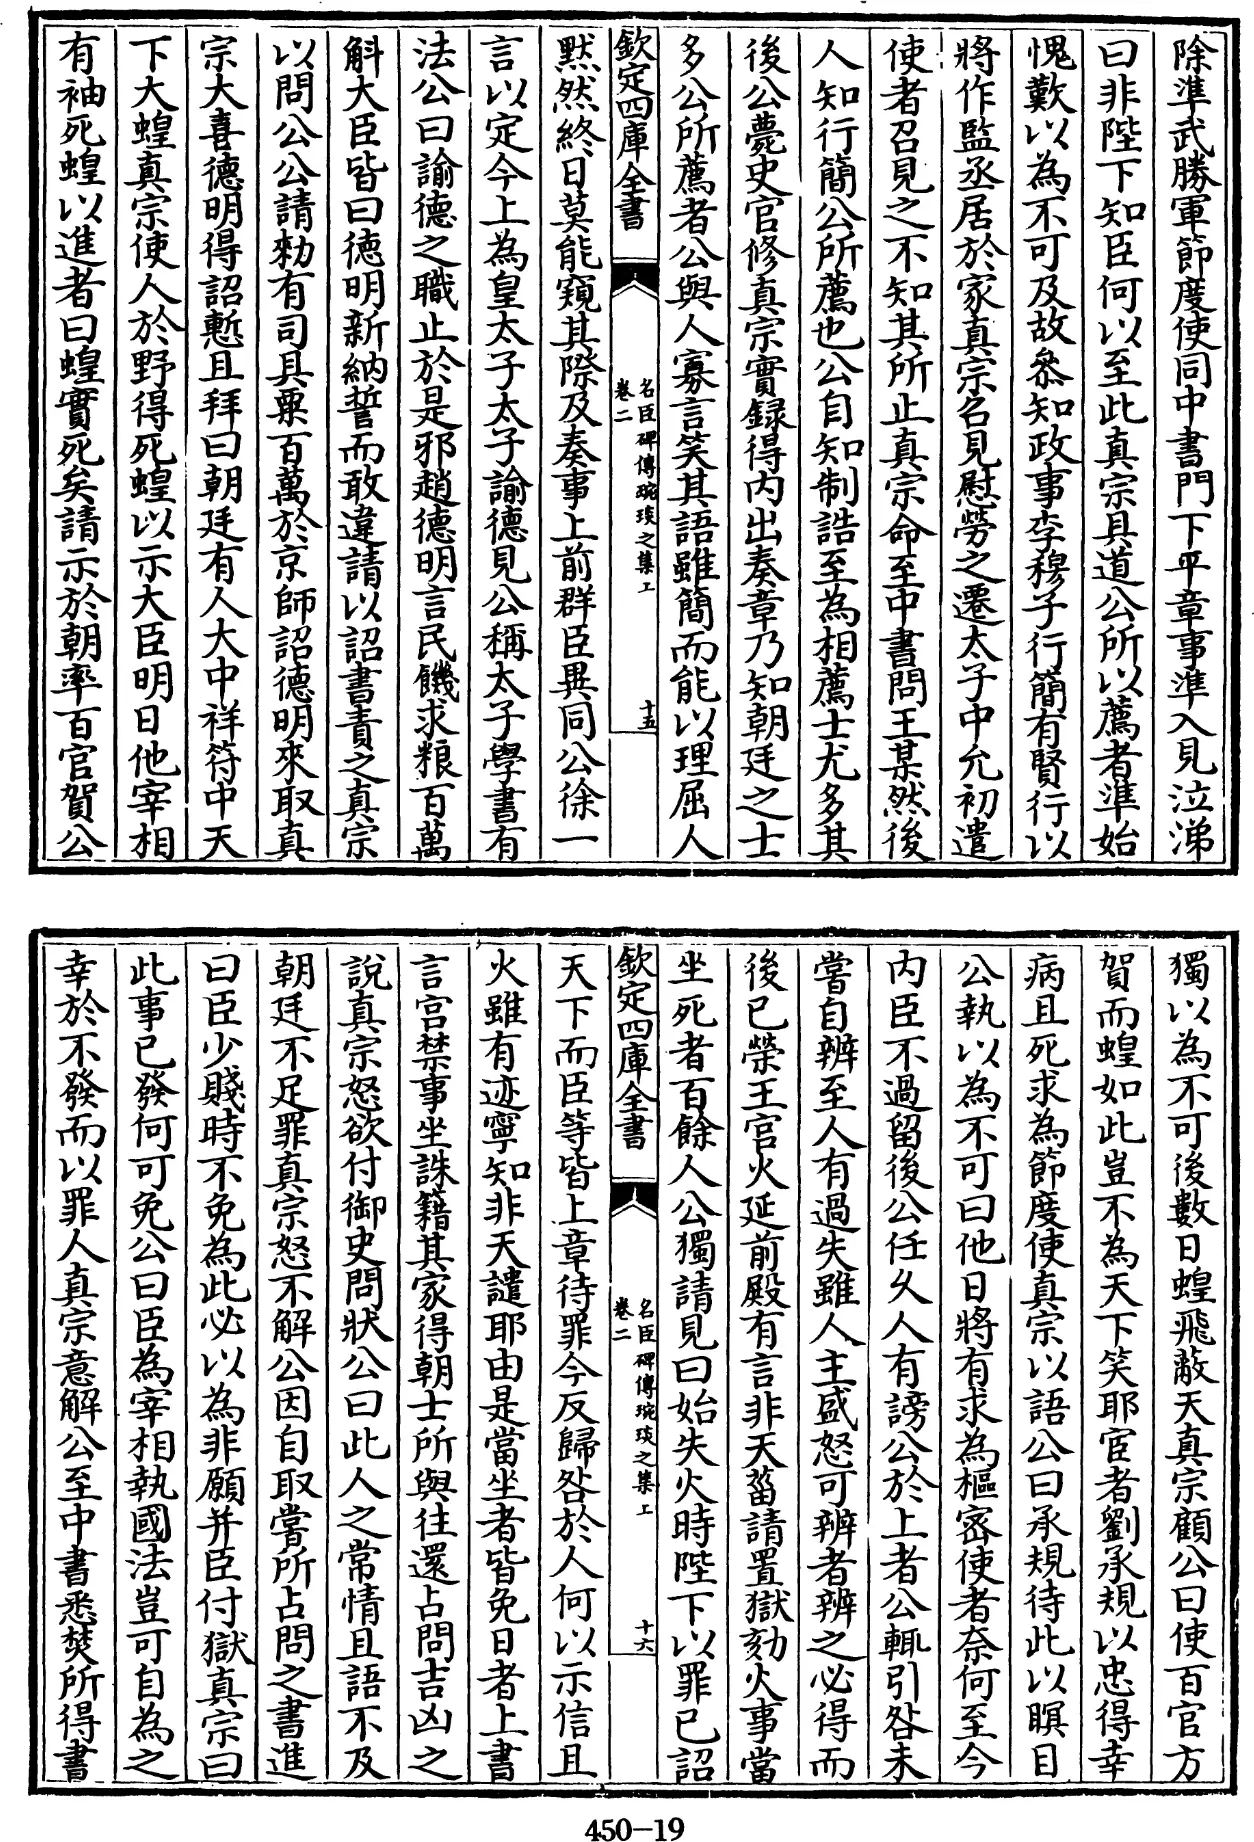 除準武勝軍節度使同中書門下平章事準入見泣涕
曰非陛下知臣何以至此真宗具道公所以薦者準始
愧歎以為不可及故叅知政事李穆子行簡有賢行以
將作監丞居於家真宗名見慰勞之遷太子中允初遣
使者召見之不知其所止真宗命至中書問王某然後
人知行簡公所薦也公自知制誥至為相薦士尤多其
後公薨史官修真宗實録得内出奏章乃知朝廷之士
多公所薦者公與人寡言笑其語雖簡而能以理屈人
欽定四庫全書
名臣碑傳琬琰之集上
卷二
十五
黙然終日莫能窺其際及奏事上前群臣異同公徐一
言以定今上為皇太子太子諭德見公稱太子學書有
法公曰諭德之職止於是邪趙德明言民饑求粮百萬
斛大臣皆曰徳明新納誓而敢違請以詔書責之真宗
以問公公請勑有司具粟百萬於京師詔德明來取真
宗大喜德明得詔慙且拜曰朝廷有人大中祥符中天
下大蝗真宗使人於野得死蝗以示大臣明日他宰相
有袖死蝗以進者曰蝗實死矣請示於朝率百官賀公
獨以為不可後數日蝗飛蔽天真宗顧公曰使百官方
賀而蝗如此豈不為天下笑耶宦者劉承規以忠得幸
病且死求為節度使真宗以語公曰承規待此以瞑目
公執以為不可曰他日將有求為樞密使者奈何至今
内臣不過留後公任久人有謗公於上者公輒引咎未
嘗自辨至人有過失雖人主盛怒可辨者辨之必得而
後已榮王宫火延前殿有言非天菑請置獄劾火事當
坐死者百餘人公獨請見曰始失火時陛下以罪已詔
欽定四庫全書
名臣碑傳琬琰之集上
卷二
十六
天下而臣等皆上章待罪今反歸咎於人何以示信且
火雖有迹寧知非天譴耶由是當坐者皆免日者上書
言宫禁事坐誅籍其家得朝士所與往還占問吉凶之
說真宗怒欲付御史問狀公曰此人之常情且語不及
朝廷不足罪真宗怒不解公因自取嘗所占問之書進
曰臣少賤時不免為此必以為非願并臣付獄真宗曰
此事已發何可免公曰臣為宰相執國法豈可自為之
幸於不發而以罪人真宗意解公至中書悉焚所得書
450-19